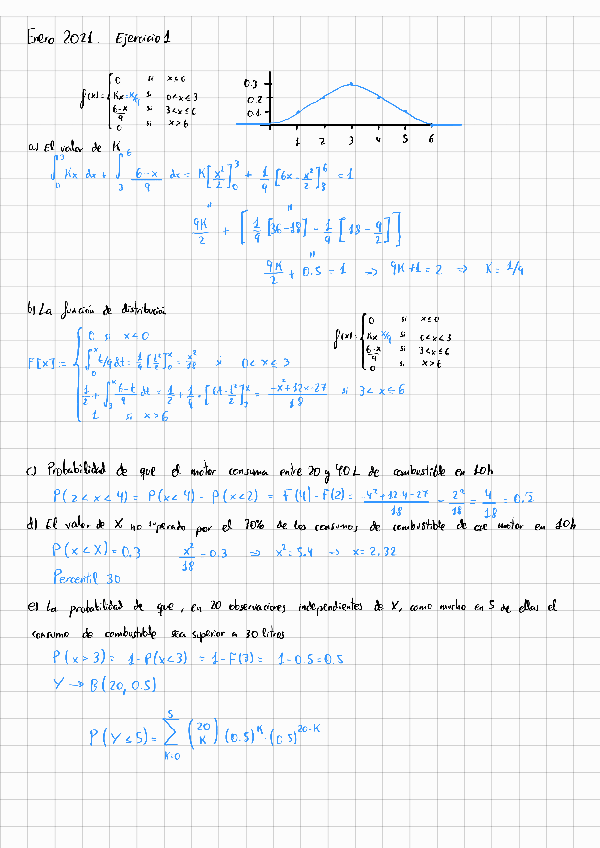 Enero 2021. Ejercicio 1
f(x)= { 0 si x≤0
Kx = x/9 si 0<x≤3
6-x/9 si 3<x≤6
0 si x>6
0.3
0.2
0.1
1 2 3 4 5 6
a) El valor de K
∫₀³ Kx dx + ∫₃⁶ 6-x/9 dx = K[x²/2]₀³ + 1/9 [6x - x²/2]₃⁶ = 1
9K/2 + [1/9 [36-18] - 1/9 [18 - 9/2]]
9K/2 + 0.5 = 1 → 9K+1=2 ⇒ K = 1/9
b) La función de distribución
F[x] := { 0 si x<0
∫₀ˣ t/9 dt = 1/9 [t²/2]₀ˣ = x²/18 si 0<x≤3
1/2 + ∫₃ˣ 6-t/9 dt = 1/2 + 1/9 · [6t - t²/2]₃ˣ = -x²+12x-27/18 si 3<x≤6
1 si x>6
f(x)= { 0 si x≤0
Kx x/9 si 0<x≤3
6-x/9 si 3<x≤6
0 si x>6
c) Probabilidad de que el motor consuma entre 20 y 40 L de combustible en 10h
P(2<x<4) = P(x<4) - P(x<2) = F(4) - F(2) = 4²+12·4-27/18 - 2²/18 = 4/18 = 0.2
d) El valor de X no superado por el 70% de los consumos de combustible de ese motor en 10h
P(x<X) = 0.3 x²/18 = 0.3 ⇒ x² = 5.4 → x = 2.32
Percentil 30
e) La probabilidad de que, en 20 observaciones independientes de X, como mucho en 5 de ellas el
consumo de combustible sea superior a 30 litros
P(x>3) = 1-P(x<3) = 1-F(3) = 1-0.5=0.5
Y → B(20, 0.5)
P(Y≤5) = ∑ K=0 5 (20 K) (0.5)ᴷ · (0.5)²⁰⁻ᴷ